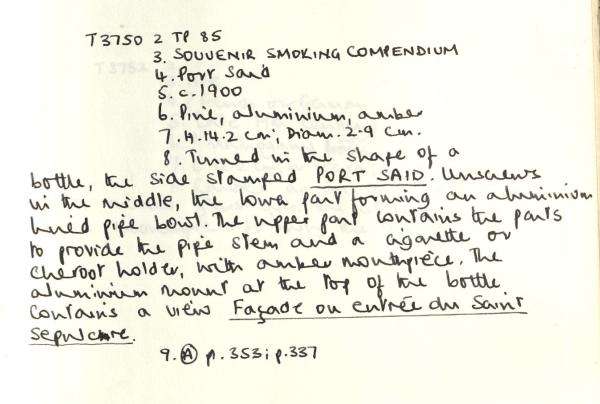 T3750 2 TP 85
3. SOUVENIR SMOKING COMPENDIUM
4. Port Said
5. c.1900
6. Pine, aluminium, amber
7. H.14.2 cm; Diam. 2.9 cm.
8. Turned in the shape of a
bottle, the side stamped PORT SAID. Unscrews
in the middle, the lower part forming an aluminium
lined pipe bowl. The upper part contains the parts
to provide the pipe stem and a cigarette or
cheroot holder, with amber mouthpiece. The
aluminium mount at the top of the bottle
contains a view Façade ou entrée du Saint
Sepulcure.
9. Ⓐ p.353; p.337